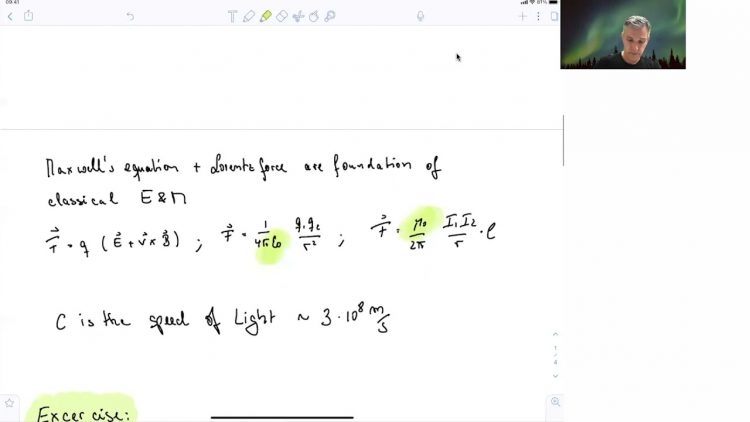 09:41
81%
Maxwell's equation + Lorentz force are foundation of
classical E&M
F⃗ = q (E⃗ + v⃗ x B⃗) ; F⃗ = 1/4πε₀ q₁q₂/r² ; F⃗ = μ₀/2π I₁I₂/r · l
C is the speed of Light ~ 3·10⁸ m/s
Excercise:
1
/
4